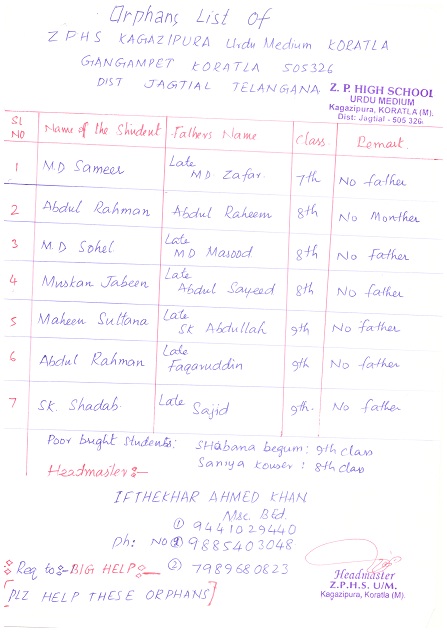 Orphans List of
ZPHS KAGAZIPURA Urdu Medium KORATLA
GANGAMPET KORATLA 505326
DIST JAGTIAL TELANGANA
Z. P. HIGH SCHOOL
URDU MEDIUM
Kagazipura, KORATLA (M).
Dist: Jagtial - 505 326.
SL NO Name of the Student Fathers Name Class Remark.
1 MD Sameer Late MD Zafar. 7th No father
2 Abdul Rahman Abdul Raheem 8th No Monther
3 M.D Sohel Late MD Masood 8th No Father
4 Muskan Jabeen Late Abdul Sayeed 8th No father
5 Maheen Sultana Late SK Abdullah 9th No father
6 Abdul Rahman Late Faqaruddin 9th No father
7 SK. Shadab. Late Sajid 9th. No father
Poor bright Students: SHabana begum: 9th class
Saniya Kouser: 8th class
Headmaster:-
IFTHEKHAR AHMED KHAN
Msc. BEd.
① 9441029440
Ph: NO ② 9885403048
Req to:- BIG HELP:- ② 7989680823
[PLZ HELP THESE ORPHANS]
Headmaster
Z.P.H.S. U/M.
Kagazipura, Koratla (M.)